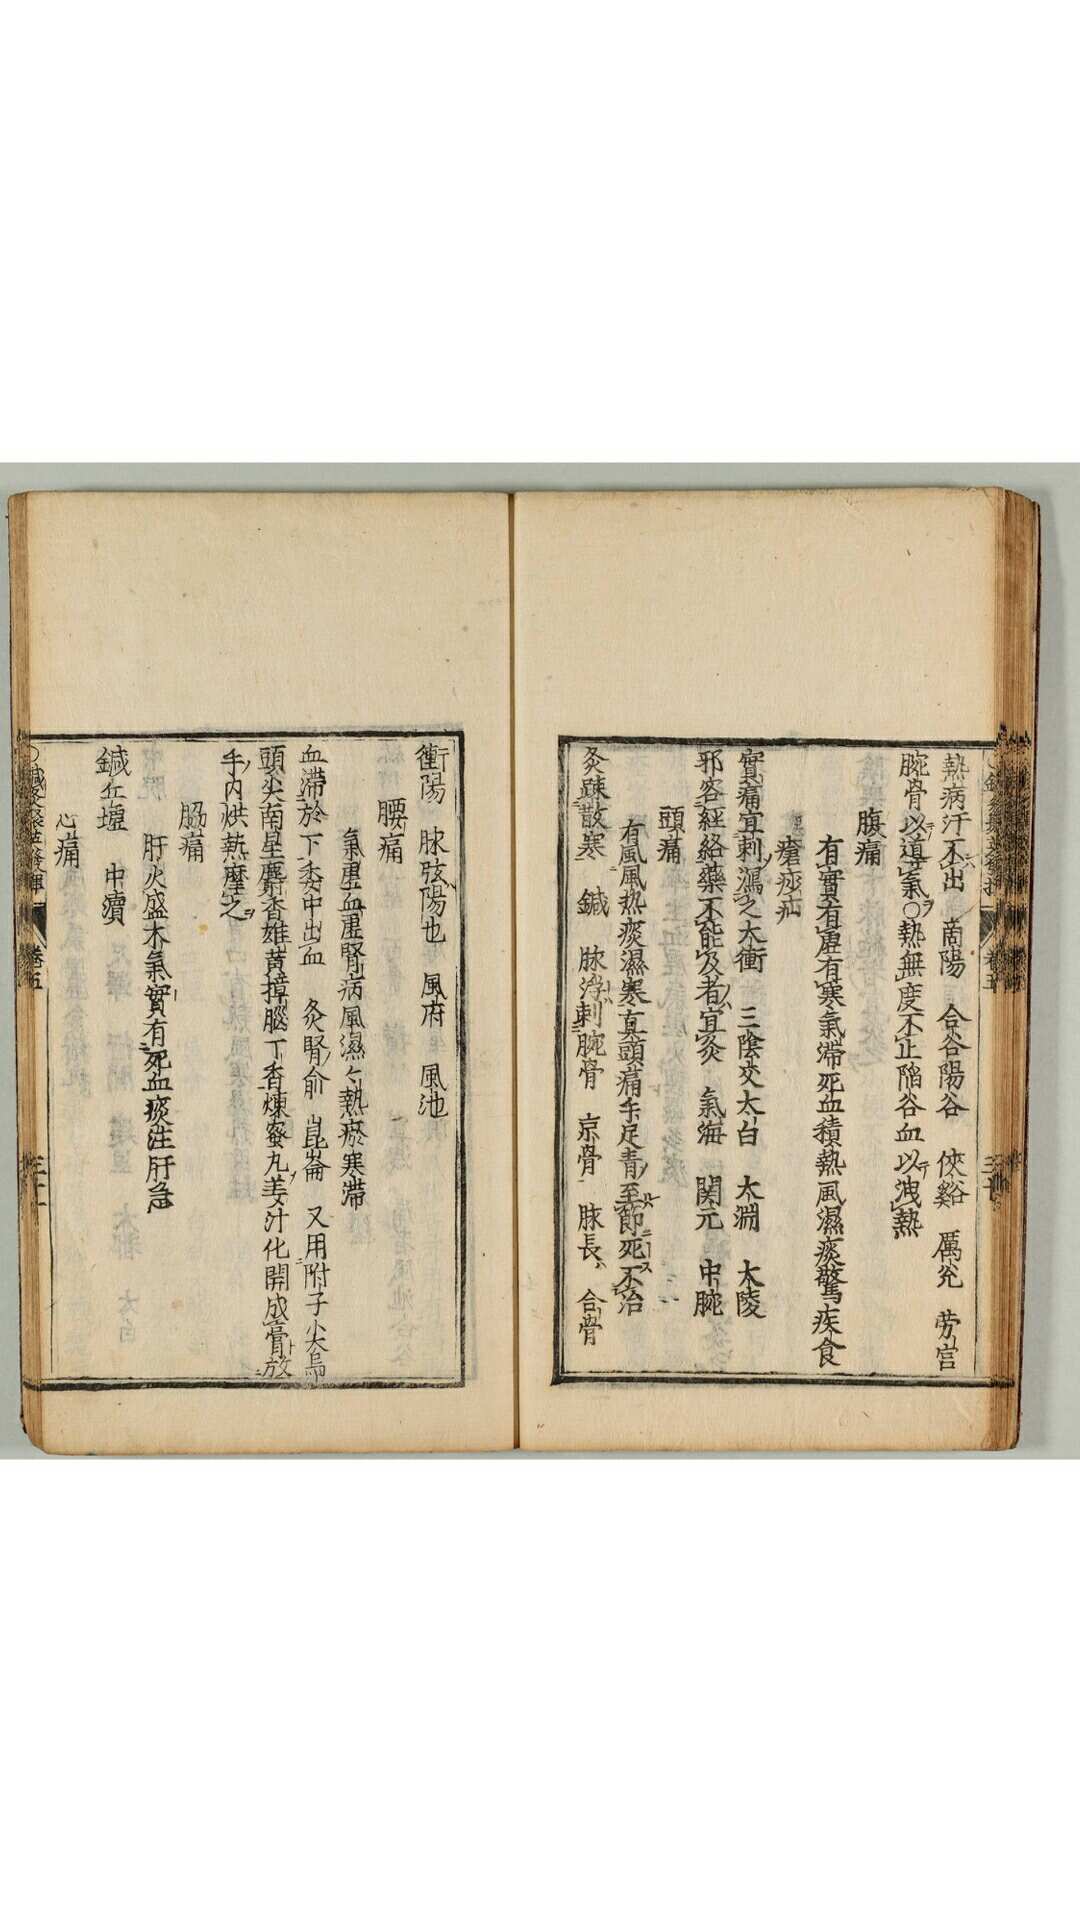 熱病汗不出　商陽　合谷陽谷　俠谿　厲兊　劳宫
腕骨以導氣○熱無度不止陷谷血以洩熱
腹痛
有實有虛有寒氣滯死血積熱風濕痰驚疾食
瘡痧疝
實痛宜刺瀉之太衝　三陰交太白　太淵　太陵
邪客経絡藥不能及者宜灸　氣海　関元　中腕
頭痛
有風風热痰濕寒真頭痛手足青至節死不治
灸疎散寒　鍼　脉浮刺腕骨　京骨　脉長　合骨
衝陽　脉弦陽也　風府　風池
腰痛
氣虛血虛腎病風濕々熱瘀寒滯
血滯於下委中出血　灸腎俞　崑崙　又用附子尖烏
頭尖南星麝香雄黄樟腦丁香煉蜜丸姜汁化開成膏放
手内烘熱摩之
脇痛
肝火盛木氣實有死血痰注肝急
鍼丘墟　中瀆
心痛
卷五
三十一